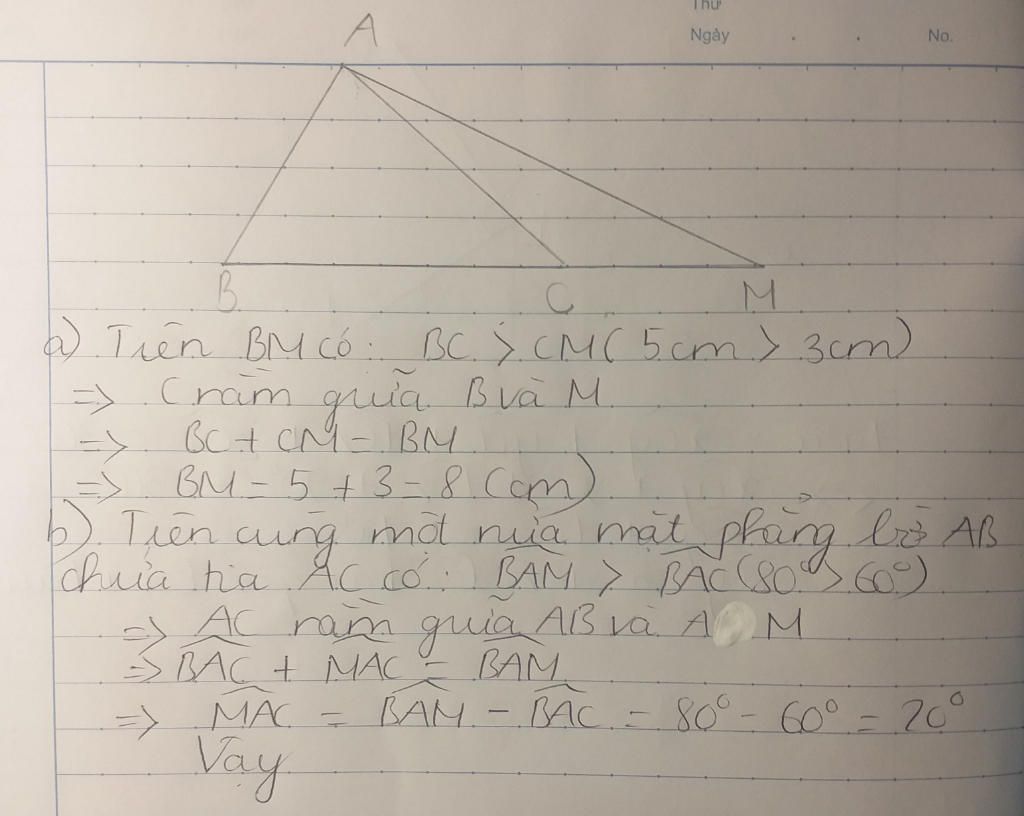 Thứ
Ngày . . No.
A
B C M
a) Trên BM có: BC > CM ( 5cm > 3cm)
=> C nằm giữa B và M
=> BC + CM = BM
=> BM = 5 + 3 = 8 (cm)
b) Trên cùng một nửa mặt phẳng bờ AB
chứa tia AC có: BAM > BAC (80° > 60°)
=> AC nằm giữa AB và A M
=> BAC + MAC = BAM
=> MAC = BAM - BAC = 80° - 60° = 20°
Vậy